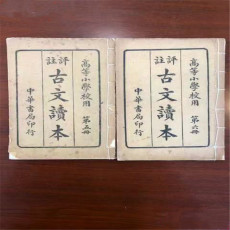 高等小學校用　第五冊
評註
古文讀本
中華書局印行
高等小學校用　第六冊
評註
古文讀本
中華書局印行